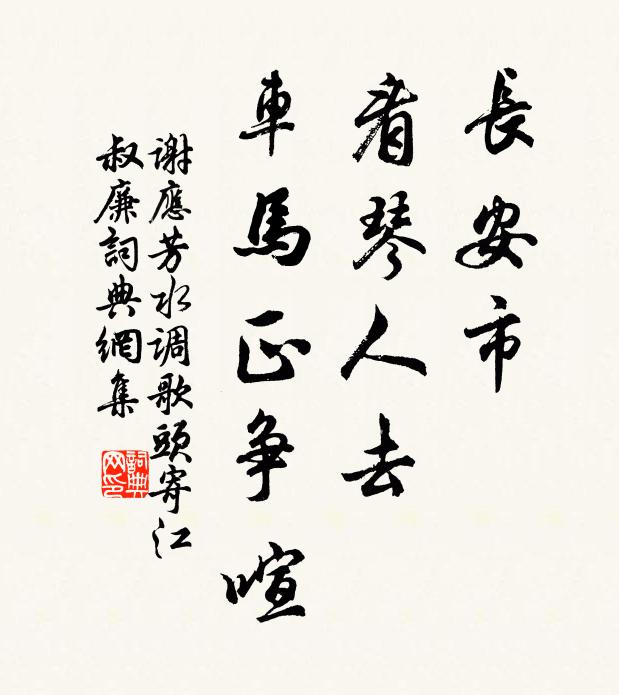 長安市
看琴人去
車馬正争喧
謝應芳水调歌頭寄江
叔廉詞典網集
詞典网印